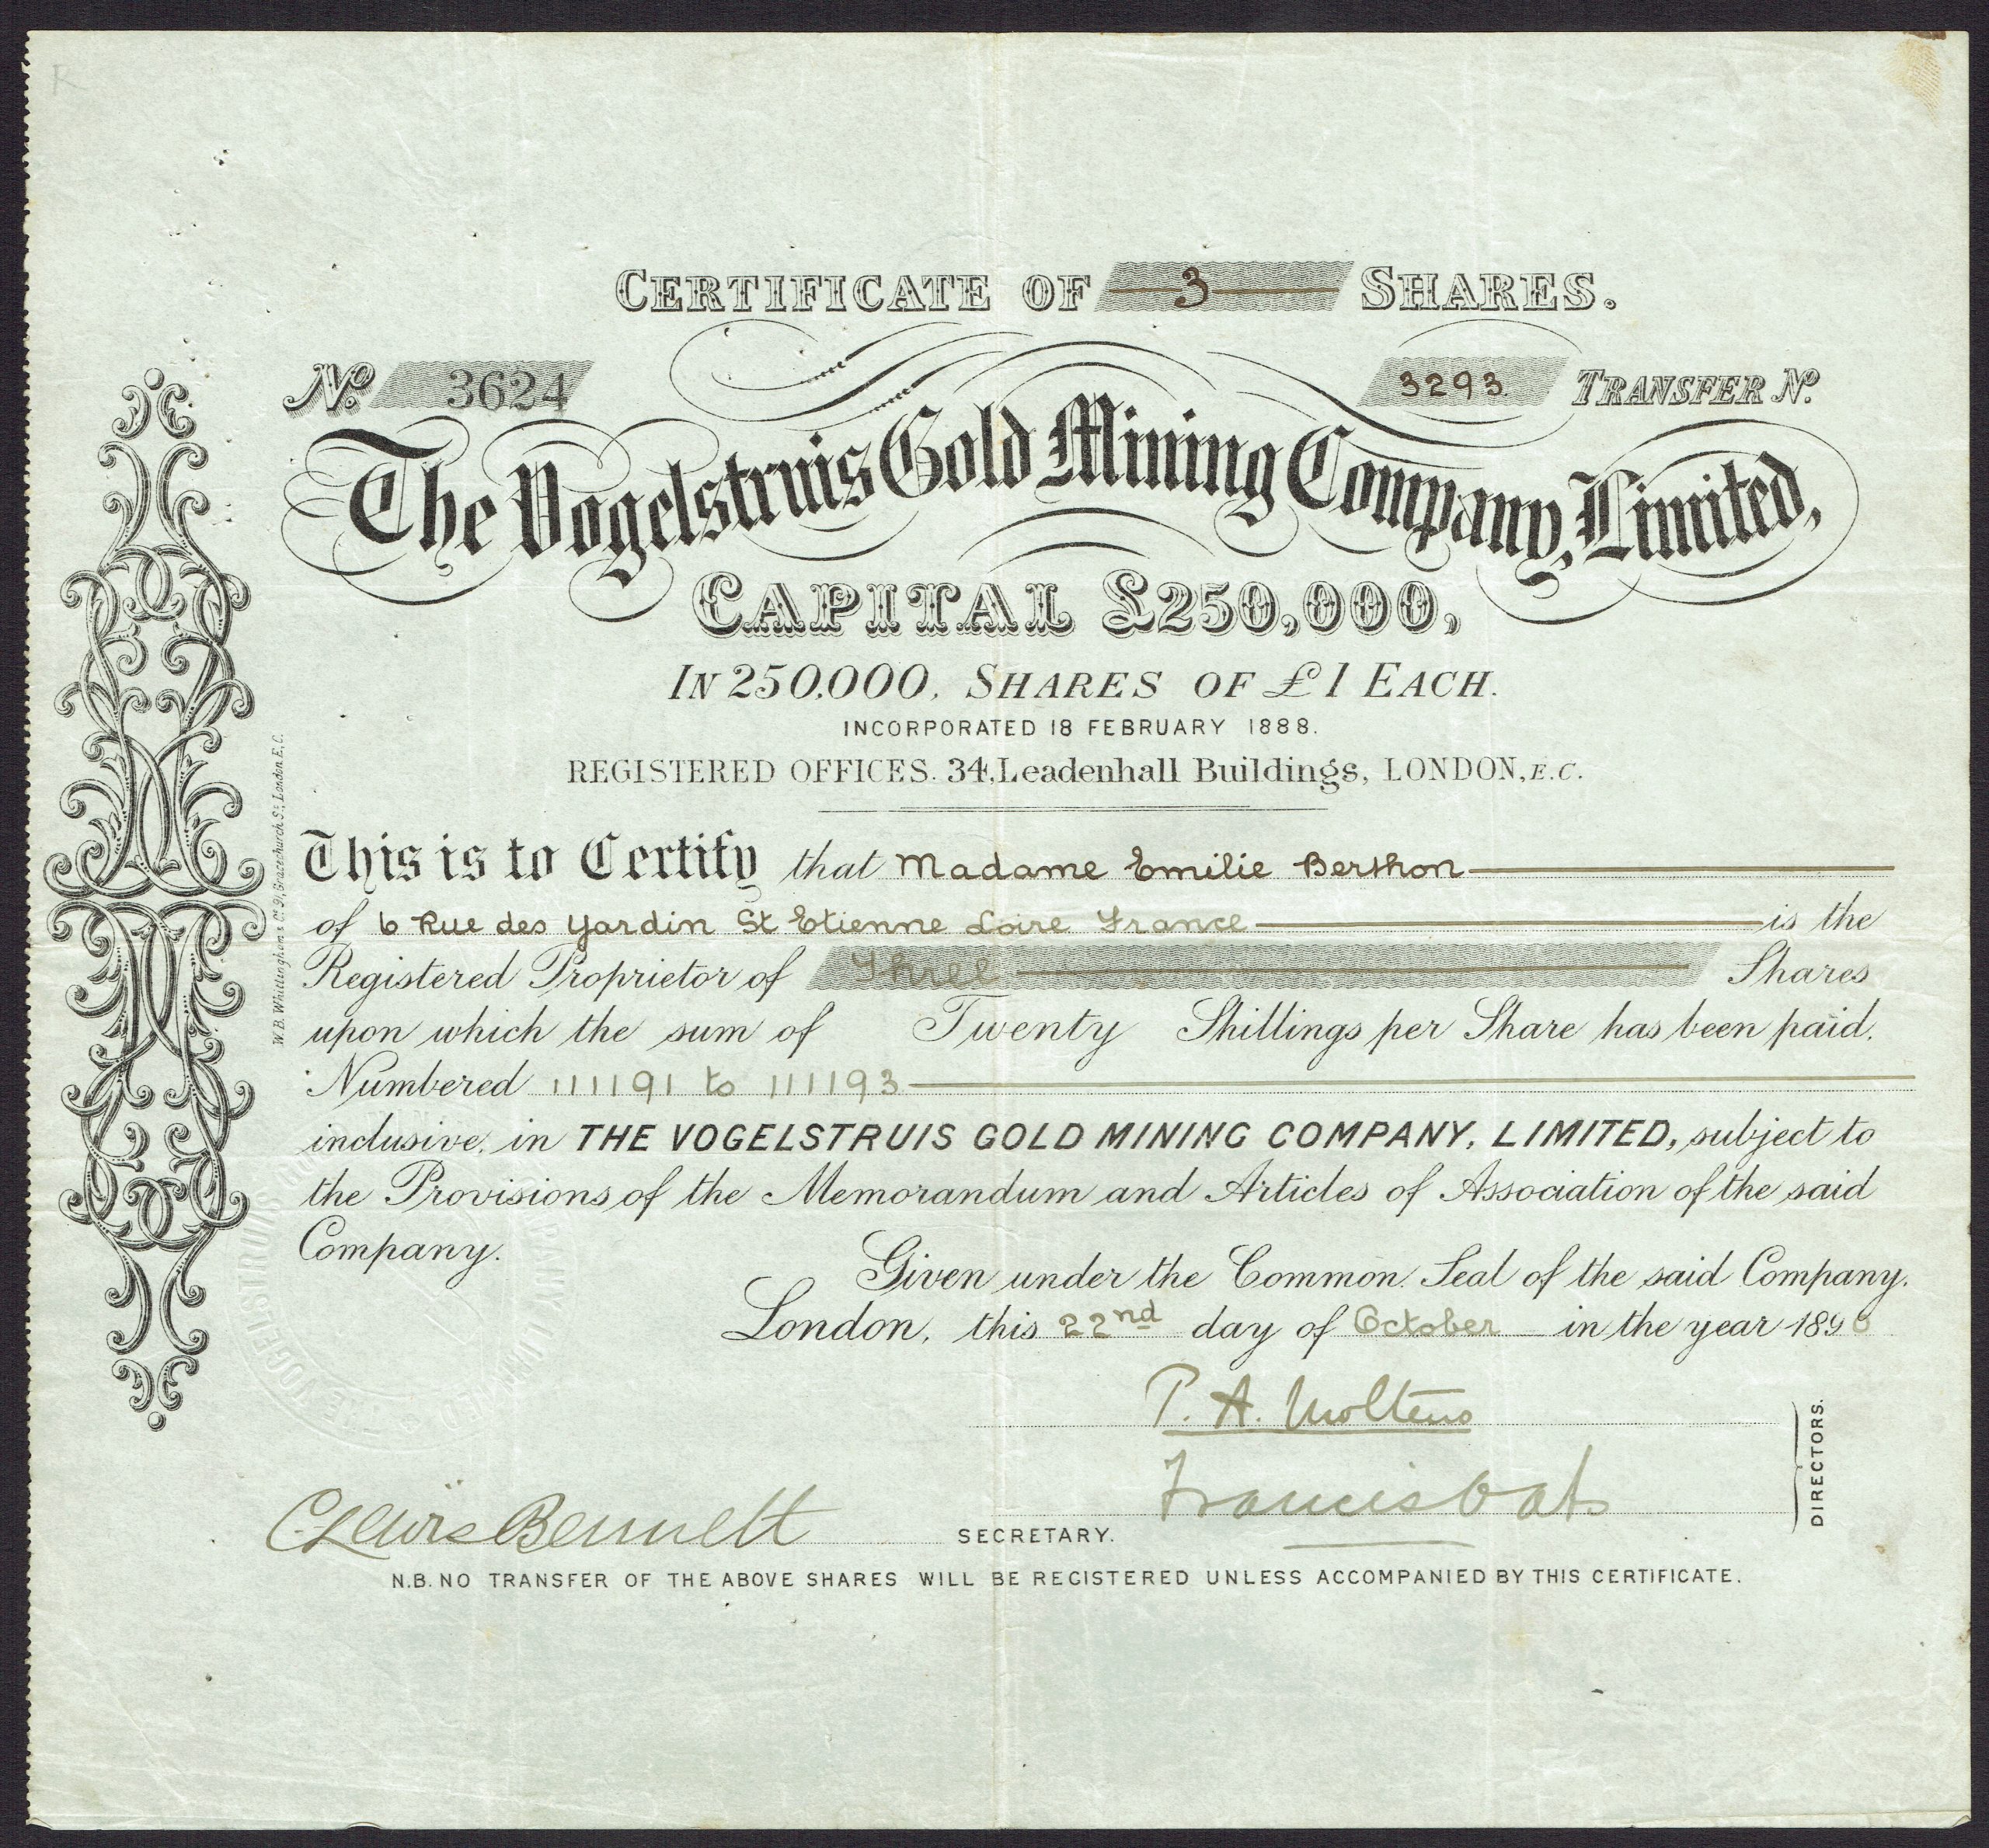 CERTIFICATE OF 3 SHARES.
No. 3624
3293 TRANSFER No.
The Vogelstruis Gold Mining Company, Limited,
CAPITAL £250,000,
IN 250,000, SHARES OF £1 EACH.
INCORPORATED 18 FEBRUARY 1888.
REGISTERED OFFICES. 34, Leadenhall Buildings, LONDON, E.C.
This is to Certify that Madame Emilie Berthon
of 6 Rue des Yardin St Etienne Loire France is the
Registered Proprietor of Three Shares
upon which the sum of Twenty Shillings per Share has been paid.
Numbered 111191 to 111193
inclusive, in THE VOGELSTRUIS GOLD MINING COMPANY, LIMITED, subject to
the Provisions of the Memorandum and Articles of Association of the said
Company.
Given under the Common Seal of the said Company.
London, this 22nd day of October in the year 1896
P. A. Molteno
Francis Oats
DIRECTORS.
C Lewis Bennett SECRETARY.
N.B. NO TRANSFER OF THE ABOVE SHARES WILL BE REGISTERED UNLESS ACCOMPANIED BY THIS CERTIFICATE.
W.B. Whittingham & Co. 91 Gracechurch St., London E.C.
THE VOGELSTRUIS COMPANY LIMITED